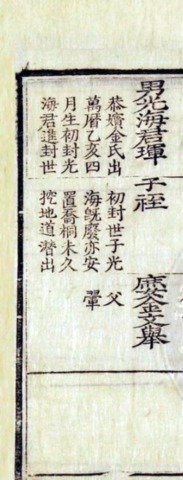 男光海君琿
恭嬪金氏出
萬曆乙亥四
月生初封光
海君進封世
子祬
初封世子光
海旣廢亦安
置喬桐未久
挖地道潛出
父
文擧